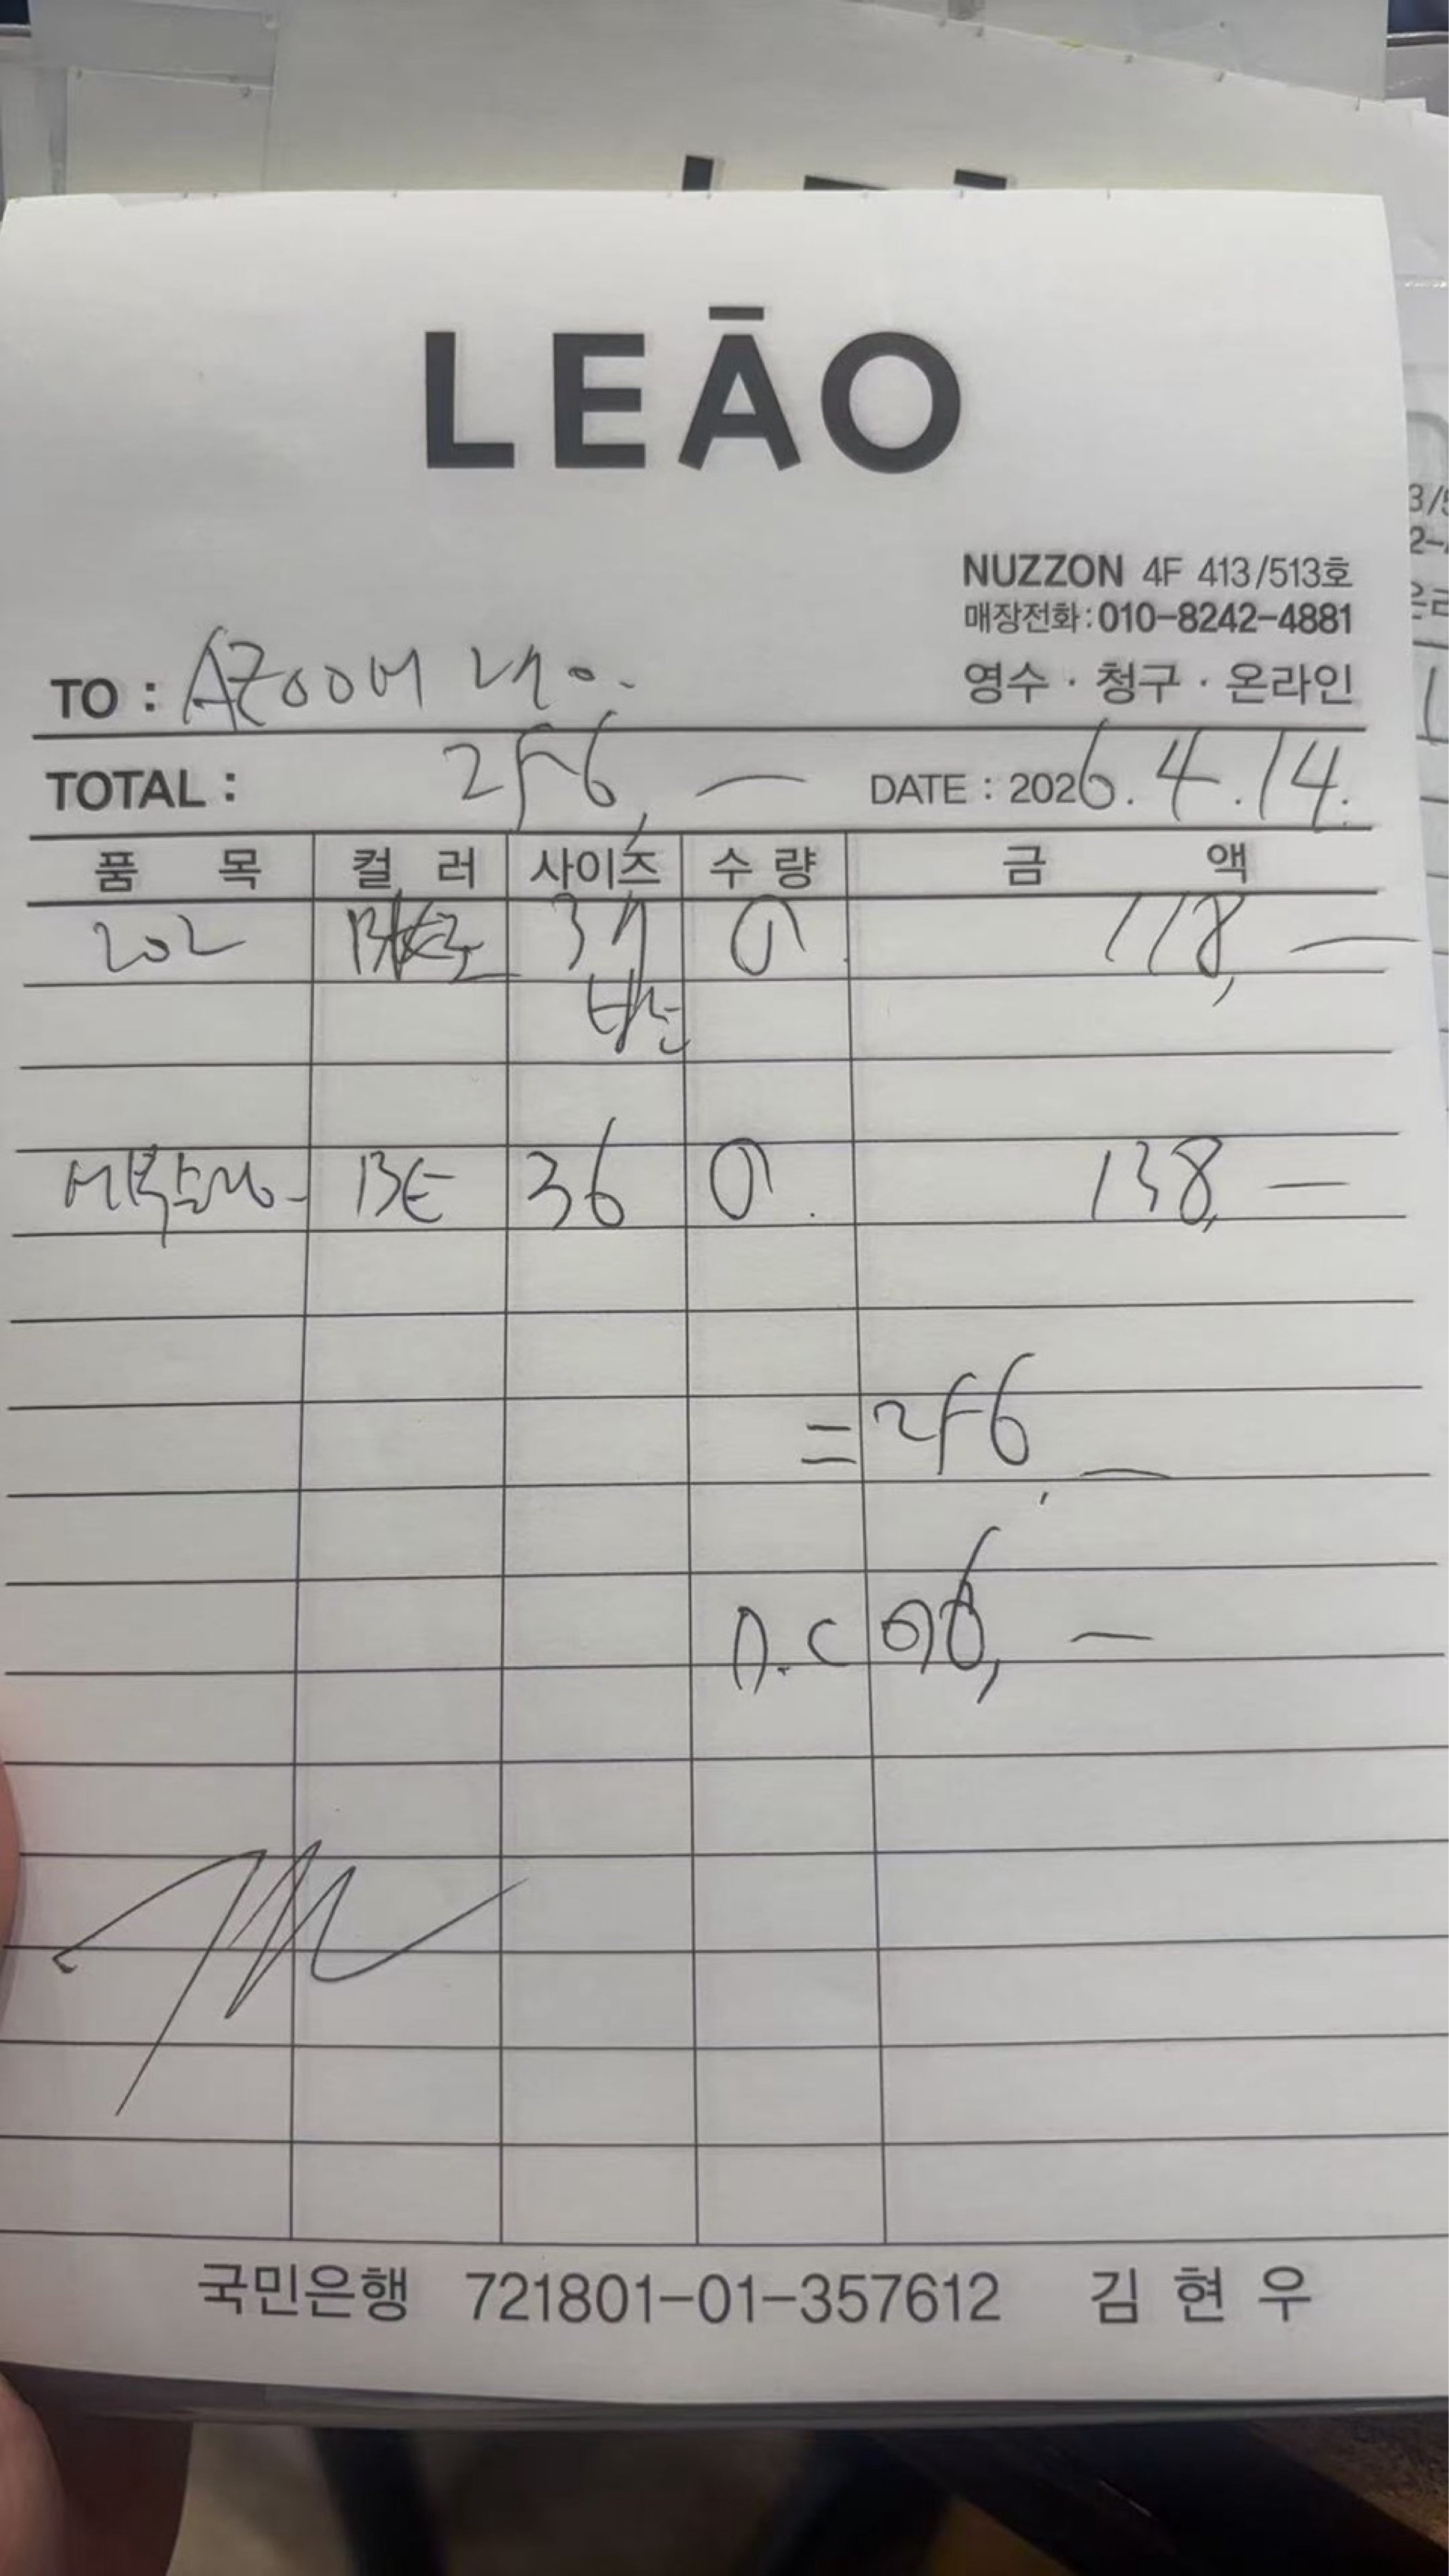 LEĀO
NUZZON 4F 413/513호
매장전화:010-8242-4881
영수 · 청구 · 온라인
TO : AZOOM
TOTAL : 256,— DATE : 2026.4.14.
품 목 컬 러 사이즈 수 량 금 액
202 37 118,—
BE 36 138,—
=256,—
D.C 6,—
국민은행 721801-01-357612 김 현 우